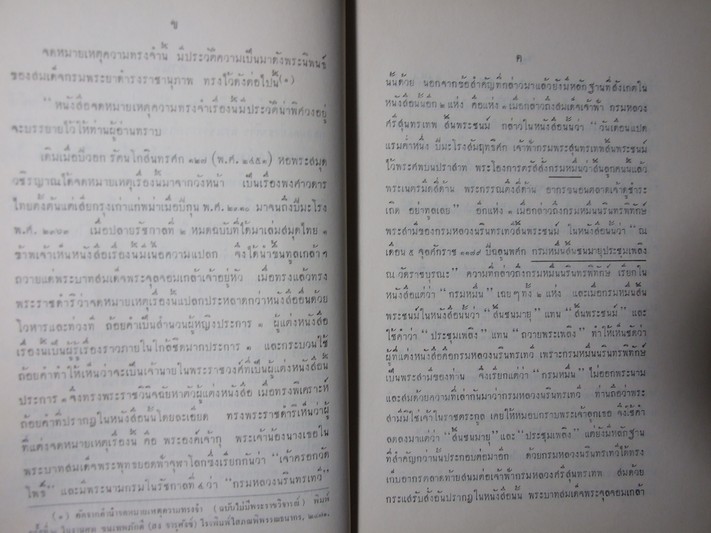 ข
จดหมายเหตุความทรงจำนี้ มีประวัติความเป็นมาดังพระนิพนธ์
ของสมเด็จกรมพระยาดำรงราชานุภาพ ทรงไว้ดังต่อไปนี้(๑)
"หนังสือจดหมายเหตุความทรงจำเรื่องนี้มีประวัติน่าพิศวงอยู่
จะบรรยายไว้ให้ท่านผู้อ่านทราบ
เดิมเมื่อปีวอก รัตนโกสินทรศก ๑๒๗ (พ.ศ. ๒๔๕๑) หอพระสมุด
วชิรญาณได้จดหมายเหตุเรื่องนี้มาจากวังหน้า เป็นเรื่องพงศาวดาร
ไทยตั้งต้นแต่เสียกรุงเก่าแก่พม่าเมื่อปีกุน พ.ศ. ๒๓๑๐ มาจนถึงปีมะโรง
พ.ศ. ๒๓๖๓ เมื่อปลายรัชกาลที่ ๒ หมดฉบับที่ได้มาเล่มสมุดไทย ๑
ข้าพเจ้าเห็นหนังสือเรื่องนั้นเนื้อความแปลก จึงได้นำขึ้นทูลเกล้าฯ
ถวายแด่พระบาทสมเด็จพระจุลจอมเกล้าเจ้าอยู่หัว เมื่อทรงแล้วทรง
พระราชดำริว่าจดหมายเหตุเรื่องนั้นแปลกประหลาดกว่าหนังสืออื่นด้วย
โวหารและท่วงที ถ้อยคำเป็นสำนวนผู้หญิงประการ ๑ ผู้แต่งหนังสือ
เรื่องนั้นเป็นผู้รู้เรื่องราวภายในใกล้ชิดมากประการ ๑ และกระบวนใช้
ถ้อยคำทำให้เห็นว่าจะเป็นเจ้านายในพระราชวงศ์ที่เป็นผู้แต่งหนังสือนั้น
ประการ ๑ จึงทรงพระราชวินิจฉัยหาตัวผู้แต่งหนังสือ เมื่อทรงพิเคราะห์
ถ้อยคำที่ปรากฏในหนังสือนั้นโดยละเอียด ทรงพระราชดำริเห็นว่าผู้
ที่แต่งจดหมายเหตุเรื่องนั้น คือ พระองค์เจ้ากุ พระเจ้าน้องนางเธอใน
พระบาทสมเด็จพระพุทธยอดฟ้าจุฬาโลกซึ่งเรียกกันว่า "เจ้าครอกวัด
โพธิ์" และมีพระนามกรมในรัชกาลที่ ๔ ว่า "กรมหลวงนรินทรเทวี"
(๑) คัดจากคำนำจดหมายเหตุความทรงจำ (ฉบับไม่มีพระราชวิจารณ์) พิมพ์
ค
นั้นด้วย นอกจากข้อสำคัญที่กล่าวมาแล้วยังมีหลักฐานที่สังเกตใน
หนังสือนั้นอีก ๒ แห่ง คือแห่ง ๑ เมื่อกล่าวถึงสมเด็จเจ้าฟ้า กรมหลวง
ศรีสุนทรเทพ สิ้นพระชนม์ กล่าวในหนังสือนั้นว่า "วันเดือนแปด
แรมค่ำหนึ่ง ปีมะโรงสัมฤทธิศก เจ้าฟ้ากรมพระสุนทรเทพสิ้นพระชนม์
ไว้พระศพบนปราสาท พระโองการตรัสสั่งกรมหมื่นว่าสิ้นลูกคนนี้แล้ว
พระเนตรมืดสี่ด้าน พระกรรณตึงสี่ด้าน ยากรอนอนตลาดเจ้าดูชำระ
เถิด อย่าทูลเลย" อีกแห่ง ๑ เมื่อกล่าวถึงกรมหมื่นนรินทรพิทักษ์
พระสามีของกรมหลวงนรินทรเทวีสิ้นพระชนม์ ในหนังสือนั้นว่า "ณ
เดือน ๕ จุลศักราช ๑๑๗๙ ปีฉลูนพศก กรมหมื่นสิ้นชนมายุประชุมเพลิง
ณ วัดราชบูรณะ" ความที่กล่าวถึงกรมหมื่นนรินทรพิทักษ์ เรียกใน
หนังสือแต่ว่า "กรมหมื่น" เฉยๆ ทั้ง ๒ แห่ง และเมื่อกรมหมื่นสิ้น
พระชนม์ในหนังสือนั้นว่า "สิ้นชนมายุ" แทน "สิ้นพระชนม์" และ
ใช้คำว่า "ประชุมเพลิง" แทน "ถวายพระเพลิง" ทำให้เห็นชัดว่า
ผู้ที่แต่งหนังสือคือกรมหลวงนรินทรเทวี เพราะกรมหมื่นนรินทรพิทักษ์
เป็นพระสามีของท่าน จึงเรียกแต่ว่า "กรมหมื่น" ไม่ออกพระนาม
และสมด้วยความที่เล่ากันมาว่ากรมหลวงนรินทรเทวี ท่านถือว่าพระ
สามีมิใช่เจ้าในราชตระกูล เคยให้หมอบกราบพระเจ้าลูกเธอ จึงใช้คำ
ลดลงมาแต่ว่า "สิ้นชนมายุ" และ "ประชุมเพลิง" แต่ยังมีหลักฐาน
ที่สำคัญกว่านั้นประกอบต่อมาอีก ด้วยกรมหลวงนรินทรเทวีได้ทรง
เก็บอากรตลาดท้ายสนมต่อเจ้าฟ้ากรมหลวงศรีสุนทรเทพ สมด้วย
กระแสรับสั่งอันปรากฏในหนังสือนั้น พระบาทสมเด็จพระจุลจอมเกล้า